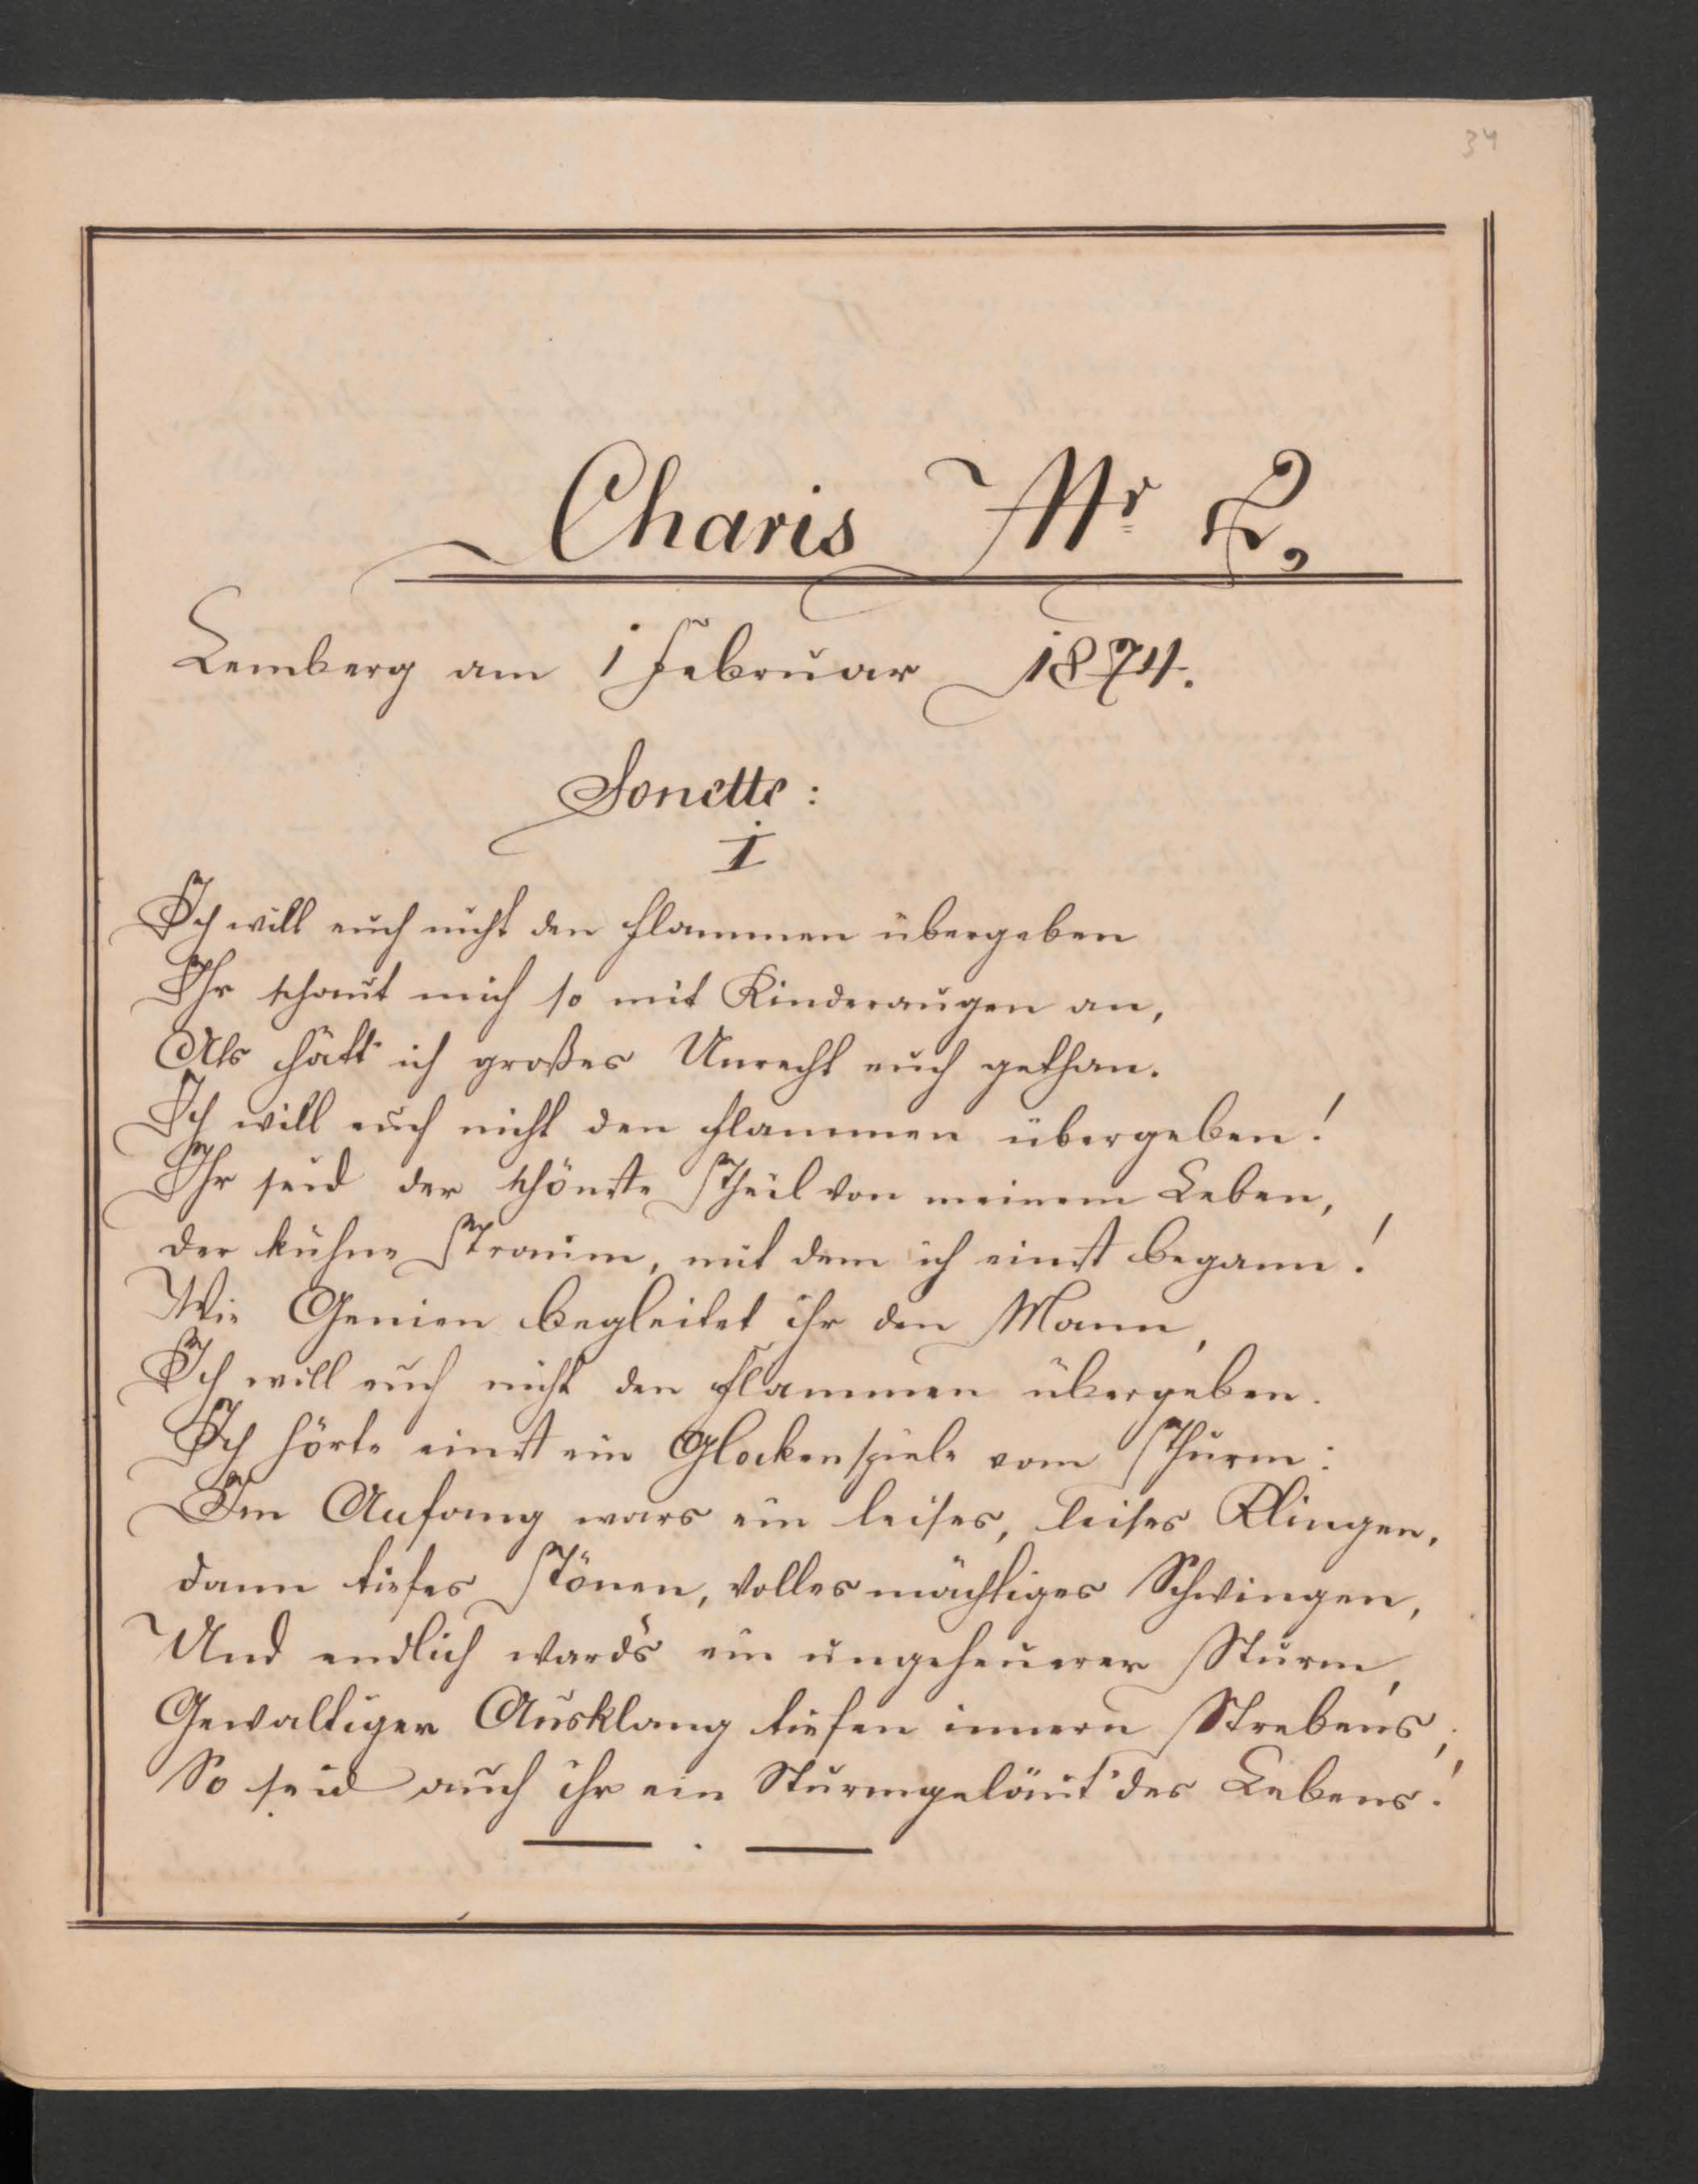 34
Charis Nr 2,
Lemberg am 1 Februar 1874.
Sonette:
I
Ich will euch nicht den Flammen übergeben
Ihr schaut mich so mit Kinderaugen an,
Als hätt' ich großes Unrecht euch gethan.
Ich will euch nicht den Flammen übergeben!
Ihr seid der schönste Theil von meinem Leben,
der kühne Traum, mit dem ich einst begann!
Wie Genien begleitet ihr den Mann,
Ich will euch nicht den Flammen übergeben.
Ich hörte einst ein Glockenspiele vom Thurm:
Im Anfang wars ein leises, leises Klingen,
dann tiefes Tönen, volles mächtiges Schwingen,
Und endlich ward's ein ungeheurer Sturm,
Gewaltiger Ausklang tiefen innern Strebens;
So seid auch ihr ein Sturmgeläut' des Lebens!